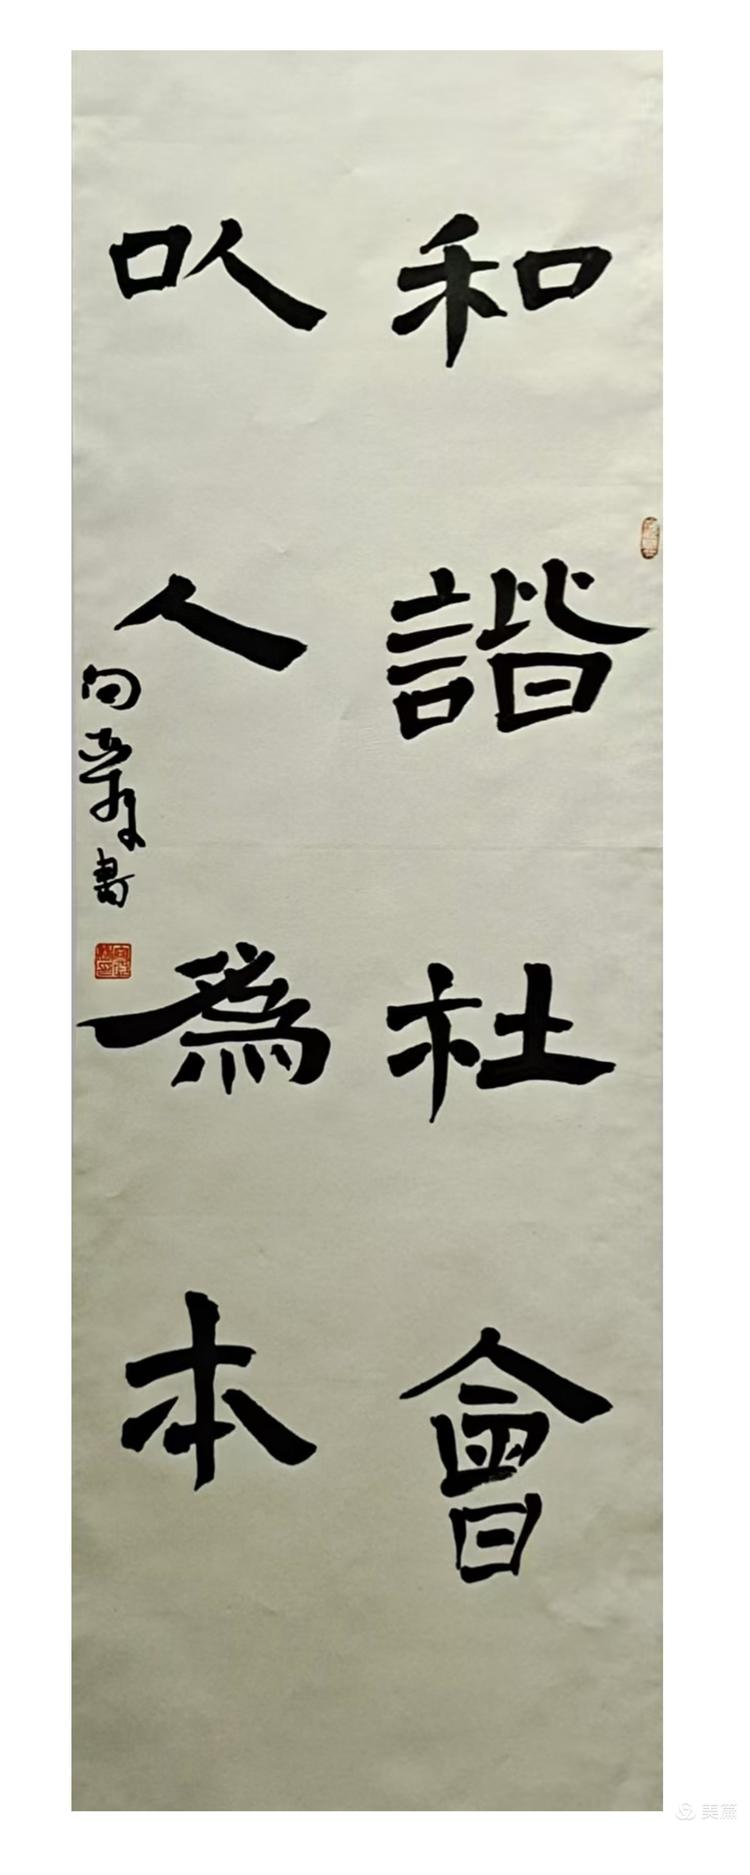 和諧社會
以人為本
向
書
美篇